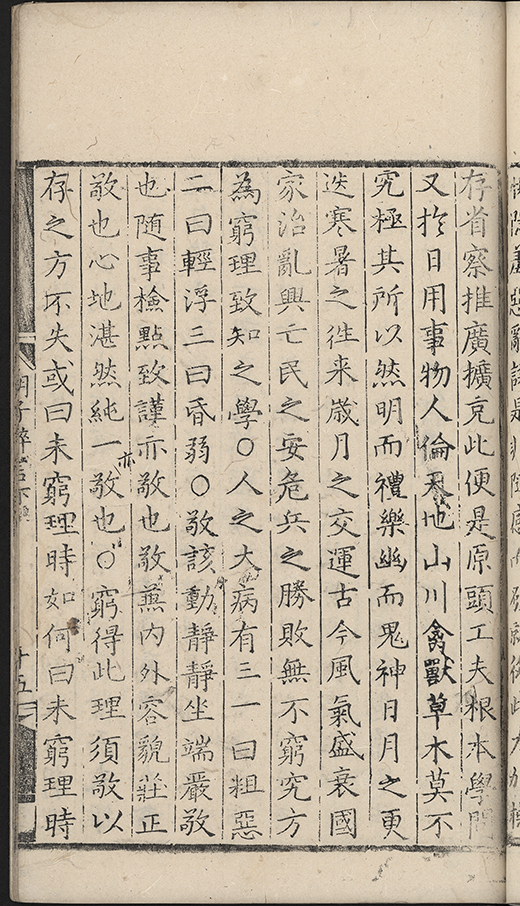 存省察推廣擴充此便是原頭工夫根本學問
又於日用事物人倫天地山川禽獸草木莫不
究極其所以然明而禮樂幽而鬼神日月之更
迭寒暑之徃来歲月之交運古今風氣盛衰國
家治亂興亡民之安危兵之勝敗無不窮究方
為窮理致知之學○人之大病有三一曰粗惡
二曰輕浮三曰昏弱○敬該動靜靜坐端嚴敬
也随事檢點致謹亦敬也敬蒹内外容貌莊正
敬也心地湛然純一亦敬也○窮得此理須敬以
存之方不失或曰未窮理時如何曰未窮理時
十五